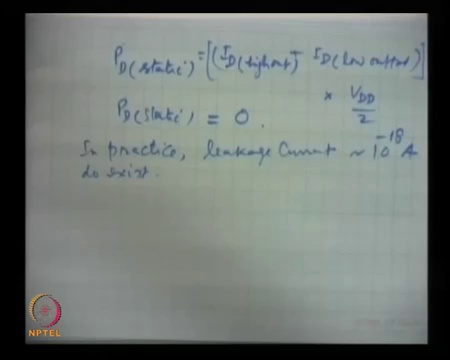 P_D(static) = [(I_D(high out) + I_D(low output)]
× V_DD/2
P_D(static) = 0.
In practice, leakage current ~ 10^-18 A
do exist.
NPTEL